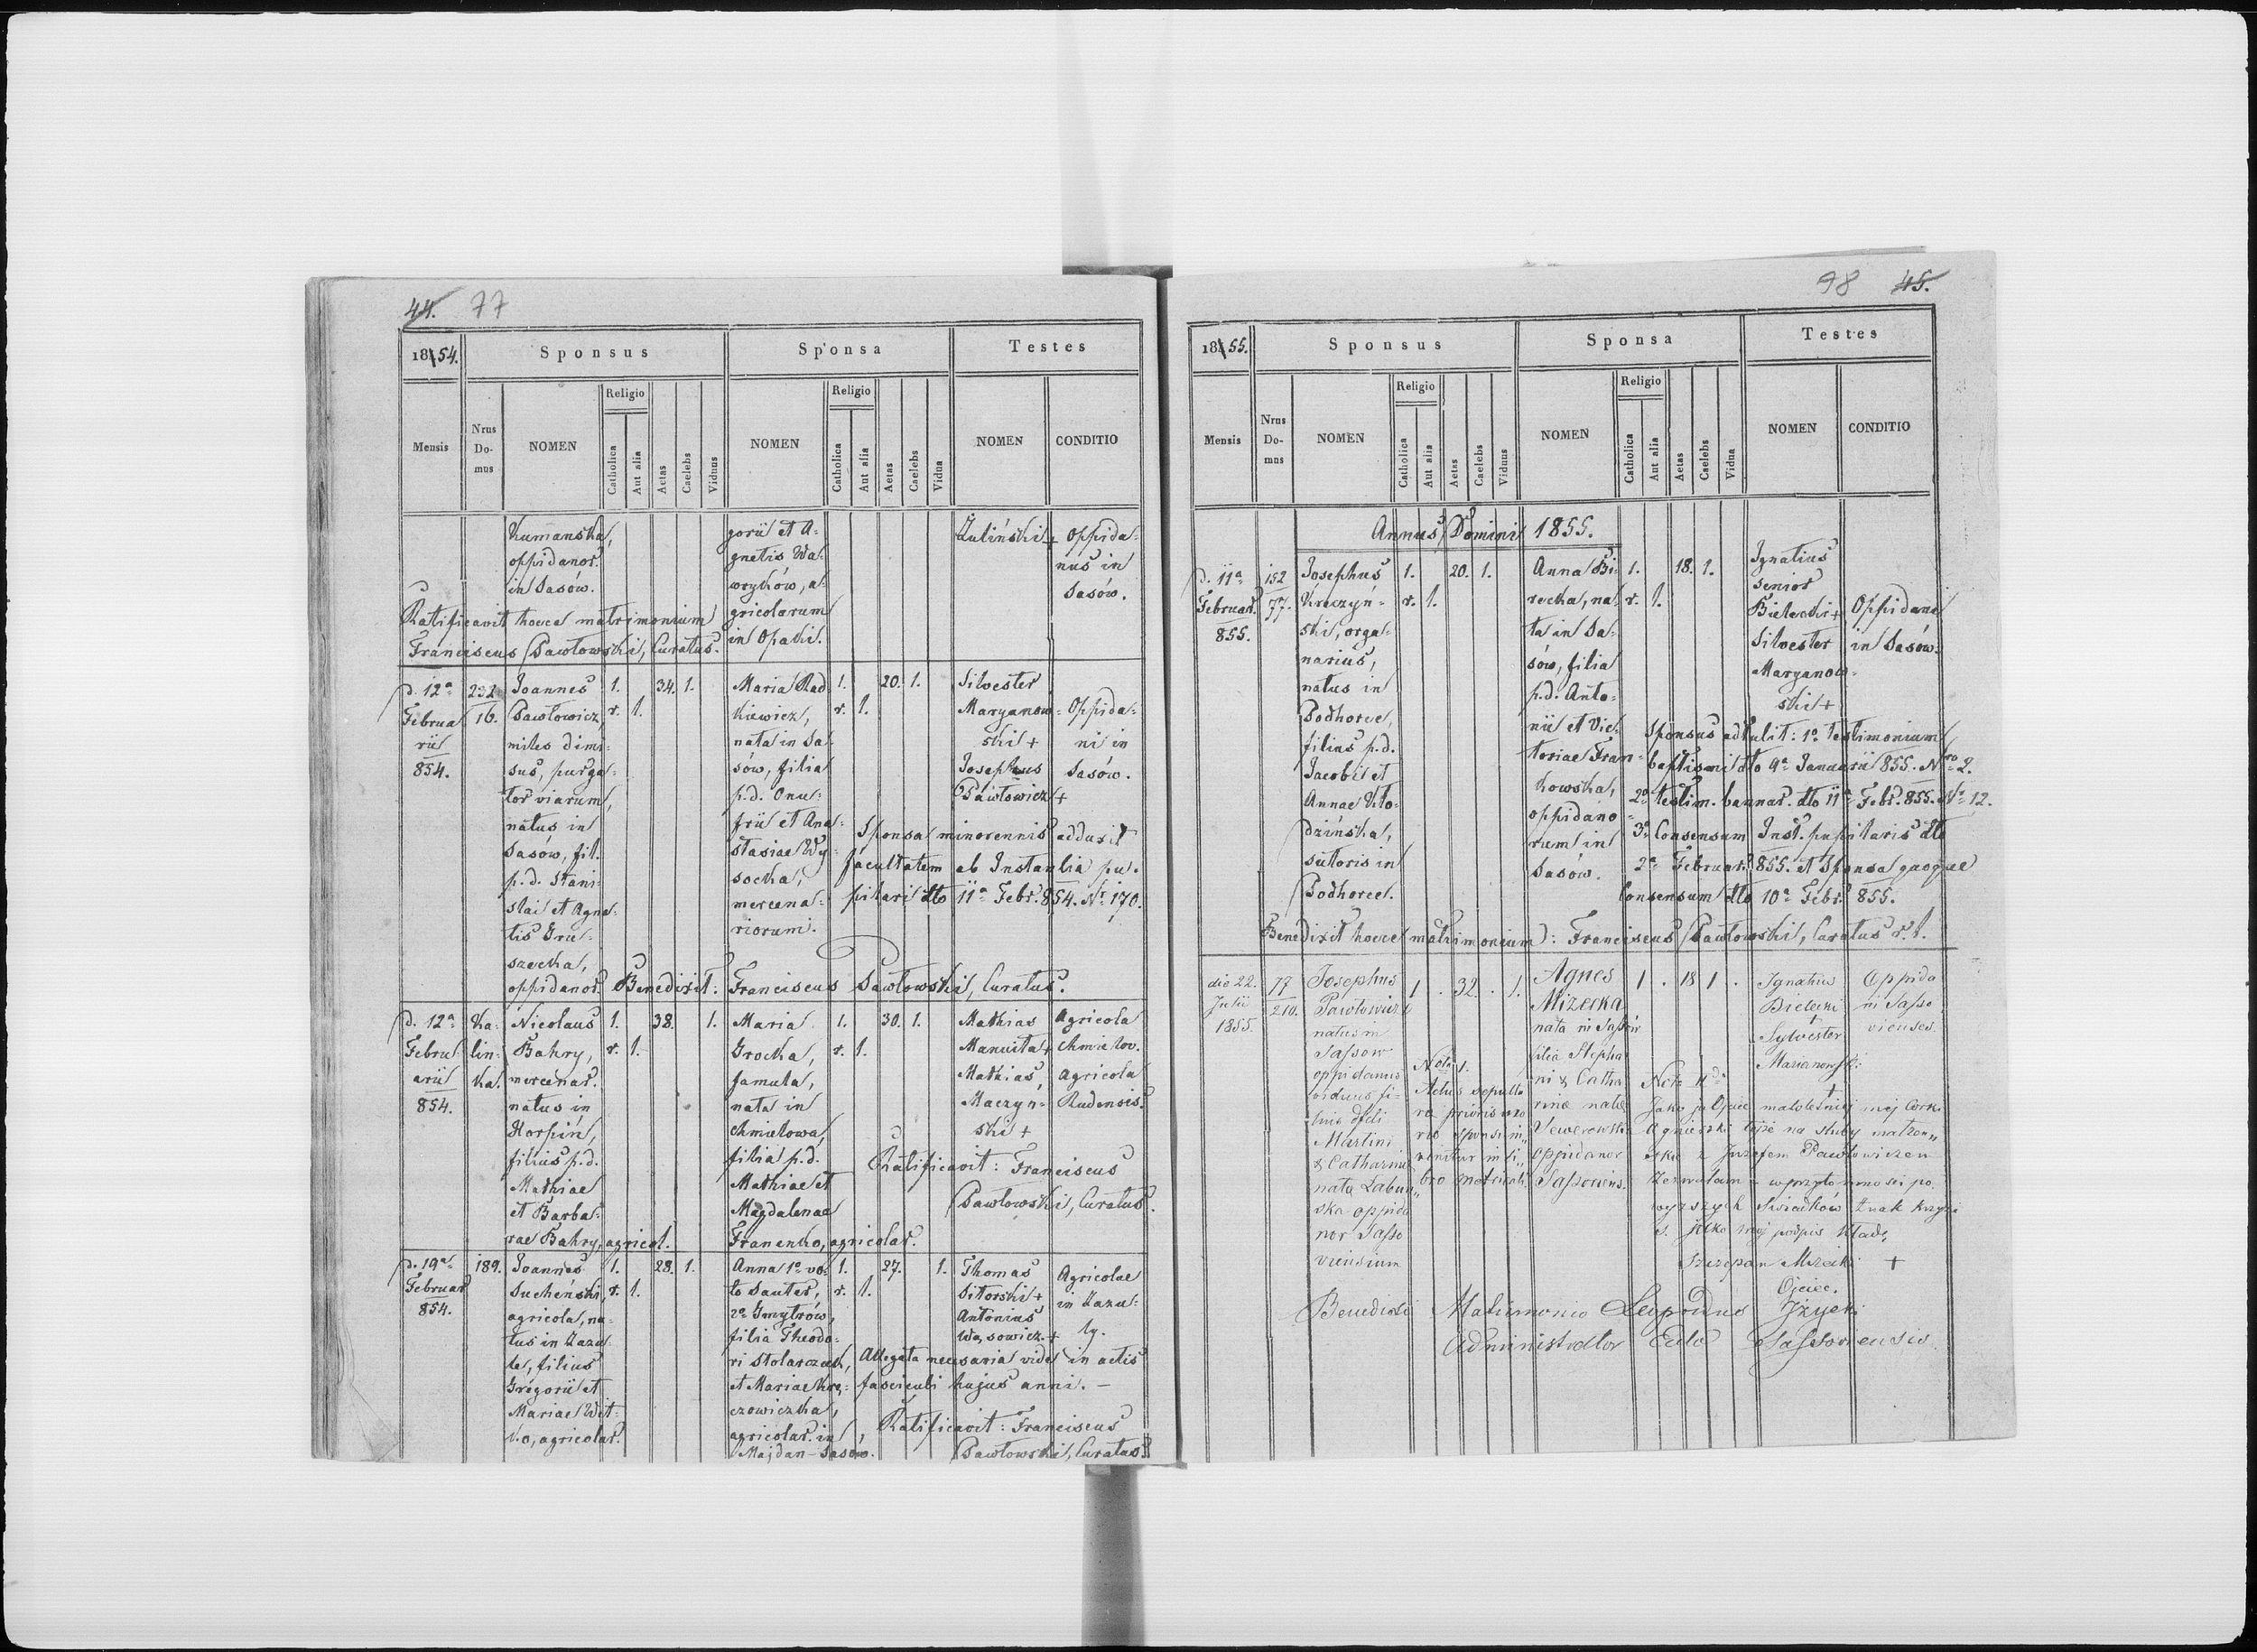 44. 77
1854.
Sponsus
Sponsa
Testes
Mensis
Nrus Do-mus
NOMEN
Religio
Catholica
Aut alia
Aetas
Caelebs
Viduus
NOMEN
Religio
Catholica
Aut alia
Aetas
Caelebs
Vidua
NOMEN
CONDITIO
Kumanska,
oppidanor.
in Sasów.
gorii et A-
gnetis Wa-
wryków, a-
gricolarum
in Opaki.
Żulinski +
Oppida-
nus in
Sasów.
Ratificavit hocce matrimonium
Franciscus Pawłowski, Curatus.
d. 12a
Februa-
rii
854.
232
16.
Joannes
Pawłowicz,
miles dimi-
sus, purga-
tor viarum,
natus in
Sasów, fil.
p.d. Stani-
slai et Agne-
tis Gru-
szecka,
oppidanor.
1.
r. 1.
34. 1.
Maria Rad
kiewicz,
nata in Sa-
sów, filia
p.d. Onu-
frii et Ana-
stasiae Wy-
socka,
mercena-
riorum.
1.
r. 1.
20. 1.
Silvester
Maryanow-
ski +
Josephus
Pawłowicz +
Oppida-
ni in
Sasów.
Sponsa minorennis adduxit
facultatem ab Instantia pu-
pilari dto 11a Febr. 854. Nr. 170.
Benedixit: Franciscus Pawłowski, Curatus.
d. 12a
Febru-
arii
854.
Ka-
lin-
ka.
Nicolaus
Bahry,
mercenar.
natus in
Horpin,
filius p.d.
Mathiae
et Barba-
rae Bahry, agricol.
1.
r. 1.
38. 1.
Maria
Grocka,
famula,
nata in
Chmielowa,
filia p.d.
Mathiae et
Magdalenae
Franenko, agricolar.
1.
r. 1.
30. 1.
Mathias
Manuita +
Mathias
Maczyn-
ski +
Agricola
Chmielov.
Agricola
Rudensis.
Ratificavit: Franciscus
Pawłowski, Curatus.
d. 19a
Februar
854.
189.
Joannes
Suchenski,
agricola, na-
tus in Zazu-
le, filius
Gregorii et
Mariae Wit-
ko, agricolar.
1.
r. 1.
28. 1.
Anna 1o vo-
to Sauter,
2o Gmytrów,
filia Theodo-
ri Stolarczuk,
et Mariae
czowiczka,
agricolar. in
Majdan-Sasow.
1.
r. 1.
27. 1.
Thomas
Sitorski +
Antonius
Wąsowicz +
Agricolae
in Zazu-
ly.
Allegata necessaria vide in actis
fasciculi hujus anni. —
Ratificavit: Franciscus
Pawłowski, Curatus.
98 45.
1855.
Sponsus
Sponsa
Testes
Mensis
Nrus Do-mus
NOMEN
Religio
Catholica
Aut alia
Aetas
Caelebs
Viduus
NOMEN
Religio
Catholica
Aut alia
Aetas
Caelebs
Vidua
NOMEN
CONDITIO
Annus Domini 1855.
d. 11a
Februar.
855.
152
77.
Josephus
Kręczyń-
ski, orga-
narius,
natus in
Podhorce,
filius p.d.
Jacobi et
Annae Kło-
dzińska,
sutoris in
Podhorce.
1.
r. 1.
20. 1.
Anna Bi-
recka, na-
ta in Sa-
sów, filia
p.d. Anto-
nii et Vic-
toriae Fran-
kowska,
oppidano-
rum in
Sasów.
1.
r. 1.
18. 1.
Ignatius
senior
Bielecki +
Silvester
Maryanow-
ski +
Oppidani
in Sasów.
Sponsus adtulit: 1o testimonium
baptismi dto 9a Januarii 855. Nro 2.
2o testim. bannor. dto 11a Febr. 855. Nr. 12.
3o Consensum Inst. pupilaris dto
2a Februar. 855. et Sponsa quoque
Consensum dto 10a Febr. 855.
Benedixit hocce matrimonium: Franciscus Pawłowski, Curatus r. l.
die 22.
Julii
1855.
77
210.
Josephus
Pawłowicz
natus in
Sassow
oppidanus
viduus fi-
lius
Martini
& Catharine
natę Łabuń„
ska oppida
nor Sasso
viensium
1 . 32 . 1.
Agnes
Mizecka
nata in Sassów
filia Stepha
ni & Catha
rinę natę
Sewerowska
oppidanor
Sassoviens.
1 . 18 1 .
Ignatius
Bielecki
+
Sylvester
Marianowski
Oppida
ni Sasso
vienses.
Nota 1.
Actus sepultu
rę prioris uxo
ris Sponsi in„
venitur in li„
bro metricali
Nota IIda
Jako ja Ojciec małoletniej mej Córki
Agnieszki tejże na śluby małżeń„
skie z Józefem Pawłowiczem
zezwalam w przytomności po
wyższych Swiadków znak krzyża
S. jako moj podpis kładę,
Szczepan Mizecki +
Ojciec.
Benedixi Matrimonio Leopoldus Jżycki
Administrator Eccl Sassoviensis